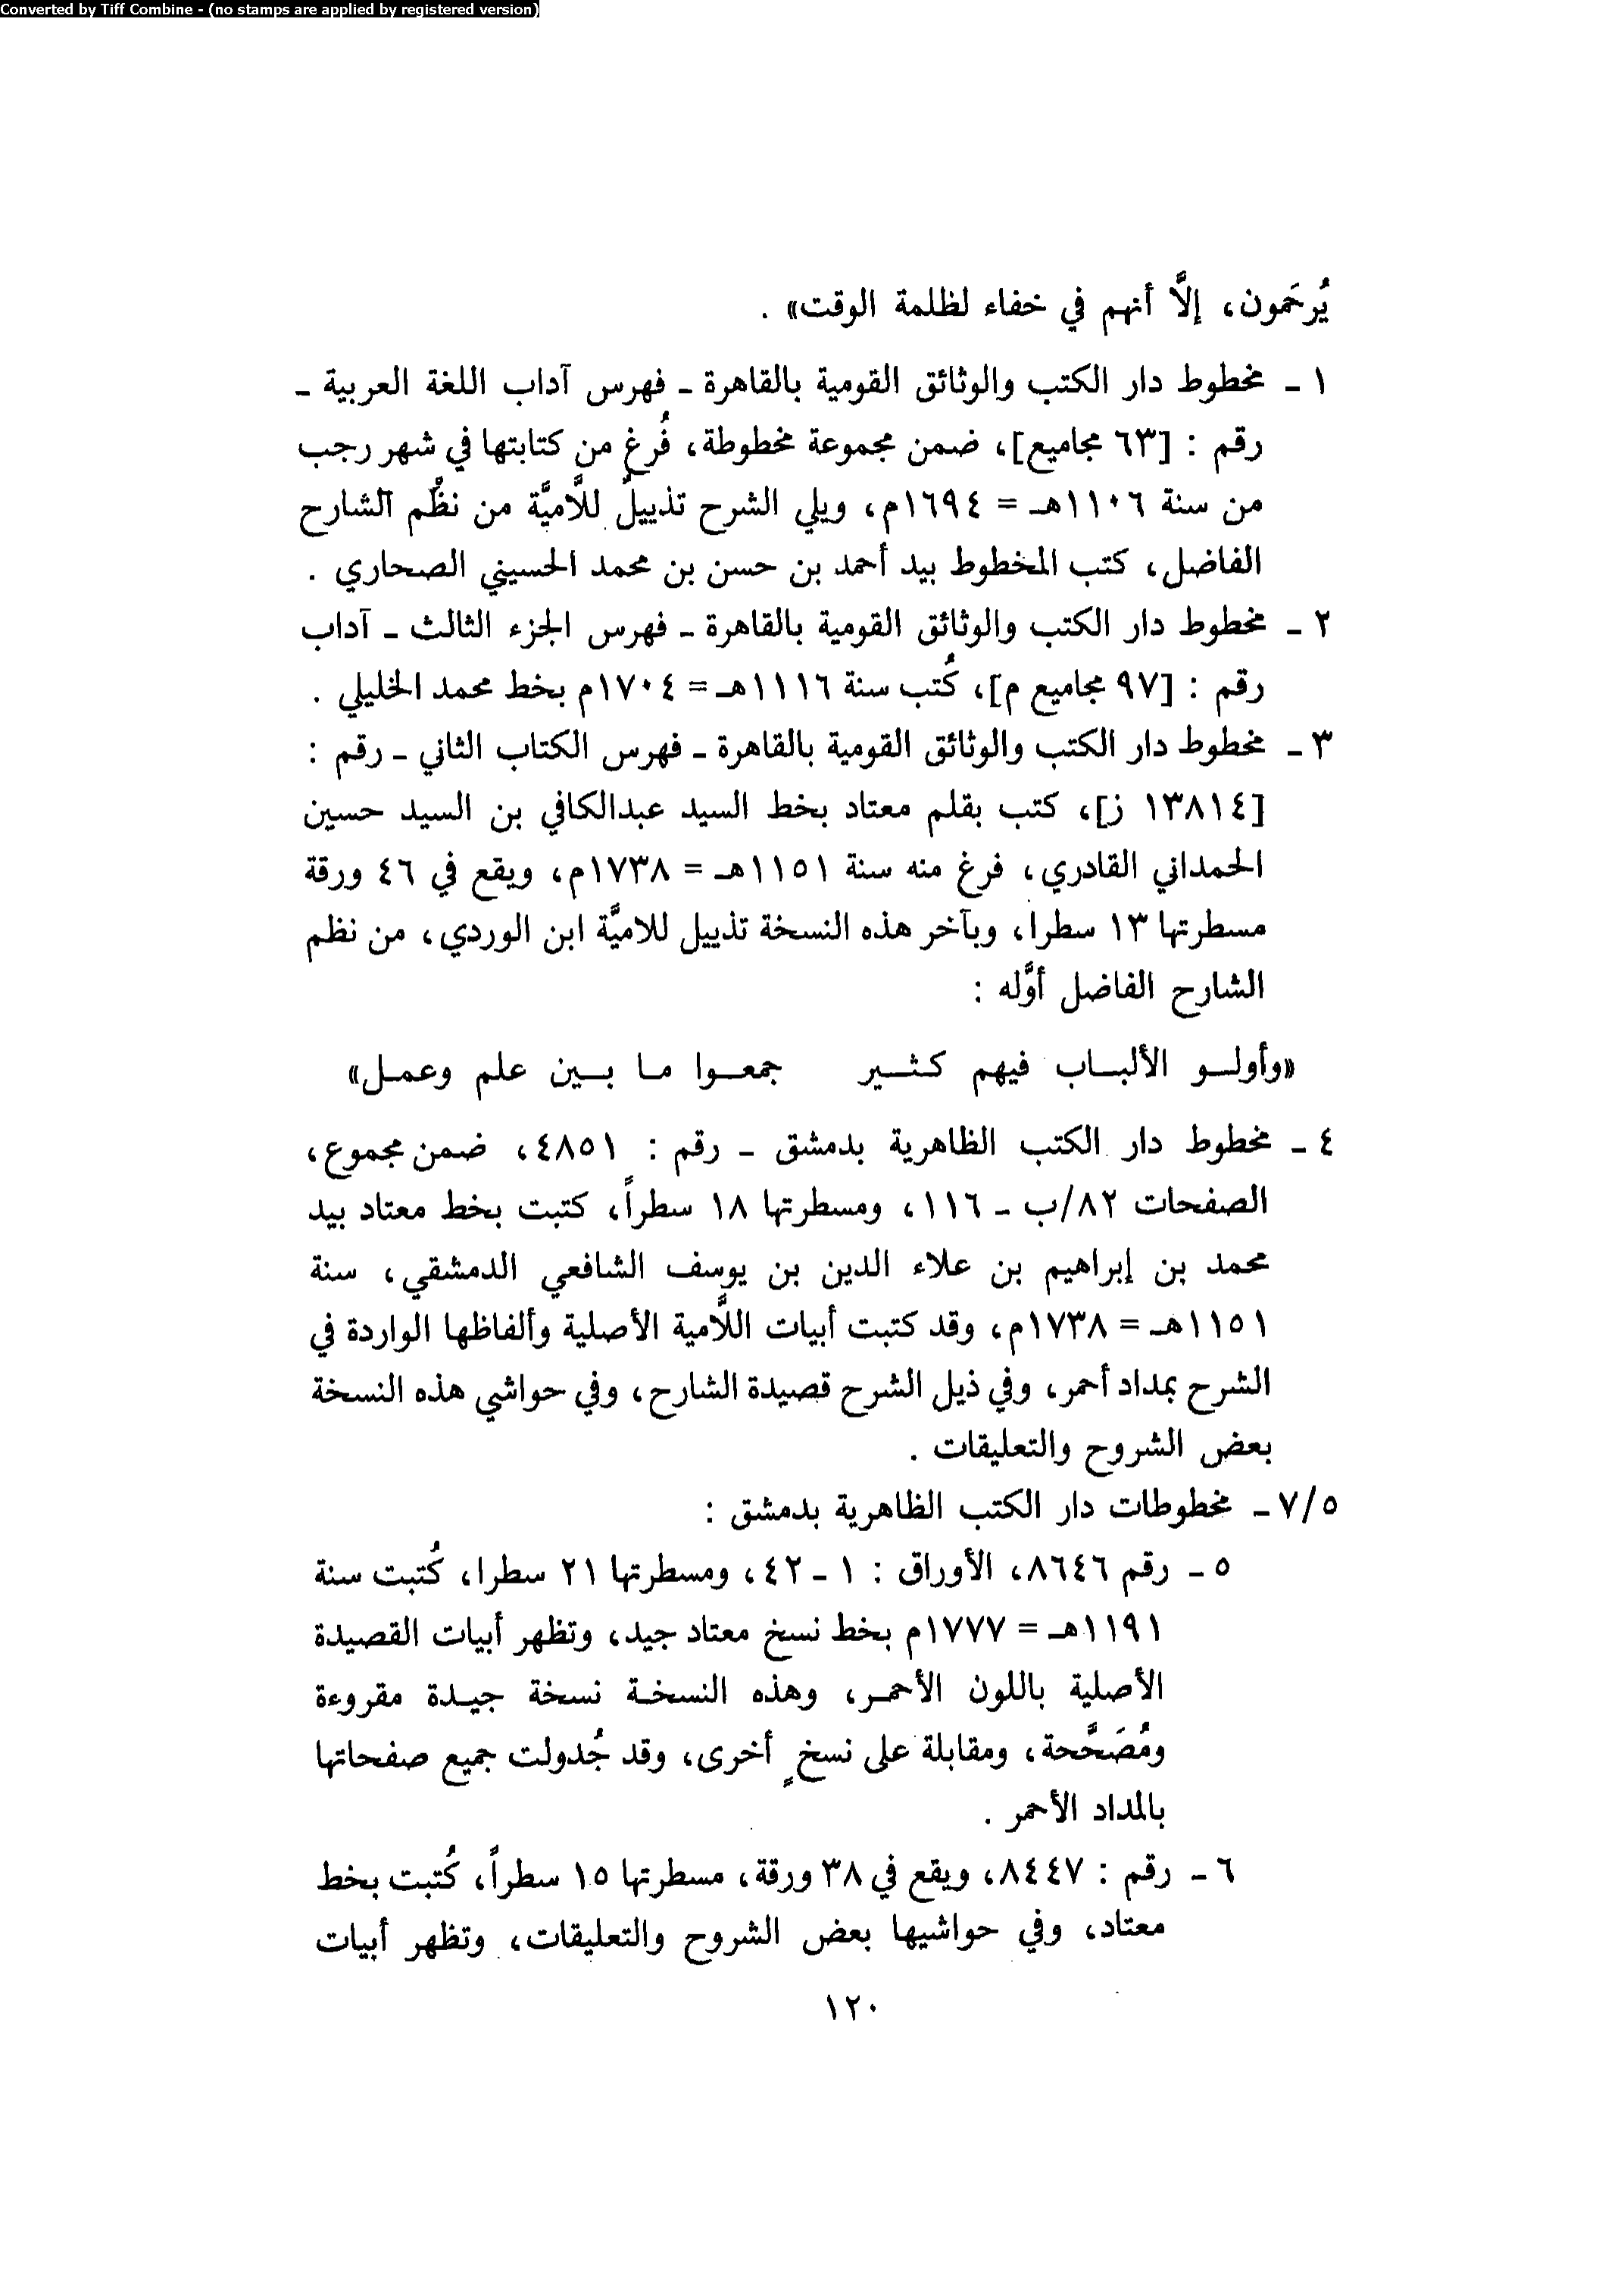 Converted by Tiff Combine - (no stamps are applied by registered version)
يُرحَمون، إلاَّ أنهم في خفاء لظلمة الوقت» .
١ ـ مخطوط دار الكتب والوثائق القومية بالقاهرة ـ فهرس آداب اللغة العربية ـ
رقم : [٦٣ مجاميع]، ضمن مجموعة مخطوطة، فُرغ من كتابتها في شهر رجب
من سنة ١١٠٦هـ = ١٦٩٤م، ويلي الشرح تذييلٌ للاَّميَّة من نظْم الشارح
الفاضل، كتب المخطوط بيد أحمد بن حسن بن محمد الحسيني الصحاري .
٢ ـ مخطوط دار الكتب والوثائق القومية بالقاهرة ـ فهرس الجزء الثالث ـ آداب
رقم : [٩٧ مجاميع م]، كُتب سنة ١١١٦هـ = ١٧٠٤م بخط محمد الخليلي .
٣ ـ مخطوط دار الكتب والوثائق القومية بالقاهرة ـ فهرس الكتاب الثاني ـ رقم :
[١٣٨١٤ ز]، كتب بقلم معتاد بخط السيد عبدالكافي بن السيد حسين
الحمداني القادري، فرغ منه سنة ١١٥١هـ = ١٧٣٨م، ويقع في ٤٦ ورقة
مسطرتها ١٣ سطرا، وبآخر هذه النسخة تذييل للاميَّة ابن الوردي، من نظم
الشارح الفاضل أوَّله :
«وأولـو الألبـاب فيهم كـثـير جمعـوا مـا بـين علم وعمـل»
٤ ـ مخطوط دار الكتب الظاهرية بدمشق ـ رقم : ٤٨٥١، ضمن مجموع،
الصفحات ٨٢/ب ـ ١١٦، ومسطرتها ١٨ سطراً، كتبت بخط معتاد بيد
محمد بن إبراهيم بن علاء الدين بن يوسف الشافعي الدمشقي، سنة
١١٥١هـ = ١٧٣٨م، وقد كتبت أبيات اللاَّمية الأصلية وألفاظها الواردة في
الشرح بمداد أحمر، وفي ذيل الشرح قصيدة الشارح، وفي حواشي هذه النسخة
بعض الشروح والتعليقات .
٧/٥ ـ مخطوطات دار الكتب الظاهرية بدمشق :
٥ ـ رقم ٨٦٤٦، الأوراق : ١ ـ ٤٢، ومسطرتها ٢١ سطرا، كُتبت سنة
١١٩١هـ = ١٧٧٧م بخط نسخ معتاد جيد، وتظهر أبيات القصيدة
الأصلية باللون الأحمـر، وهذه النسخـة نسخة جيـدة مقروءة
ومُصَحَّحة، ومقابلة على نسخٍ أخرى، وقد جُدولت جميع صفحاتها
بالمداد الأحمر .
٦ ـ رقم : ٨٤٤٧، ويقع في ٣٨ ورقة، مسطرتها ١٥ سطراً، كُتبت بخط
معتاد، وفي حواشيها بعض الشروح والتعليقات، وتظهر أبيات
١٢٠